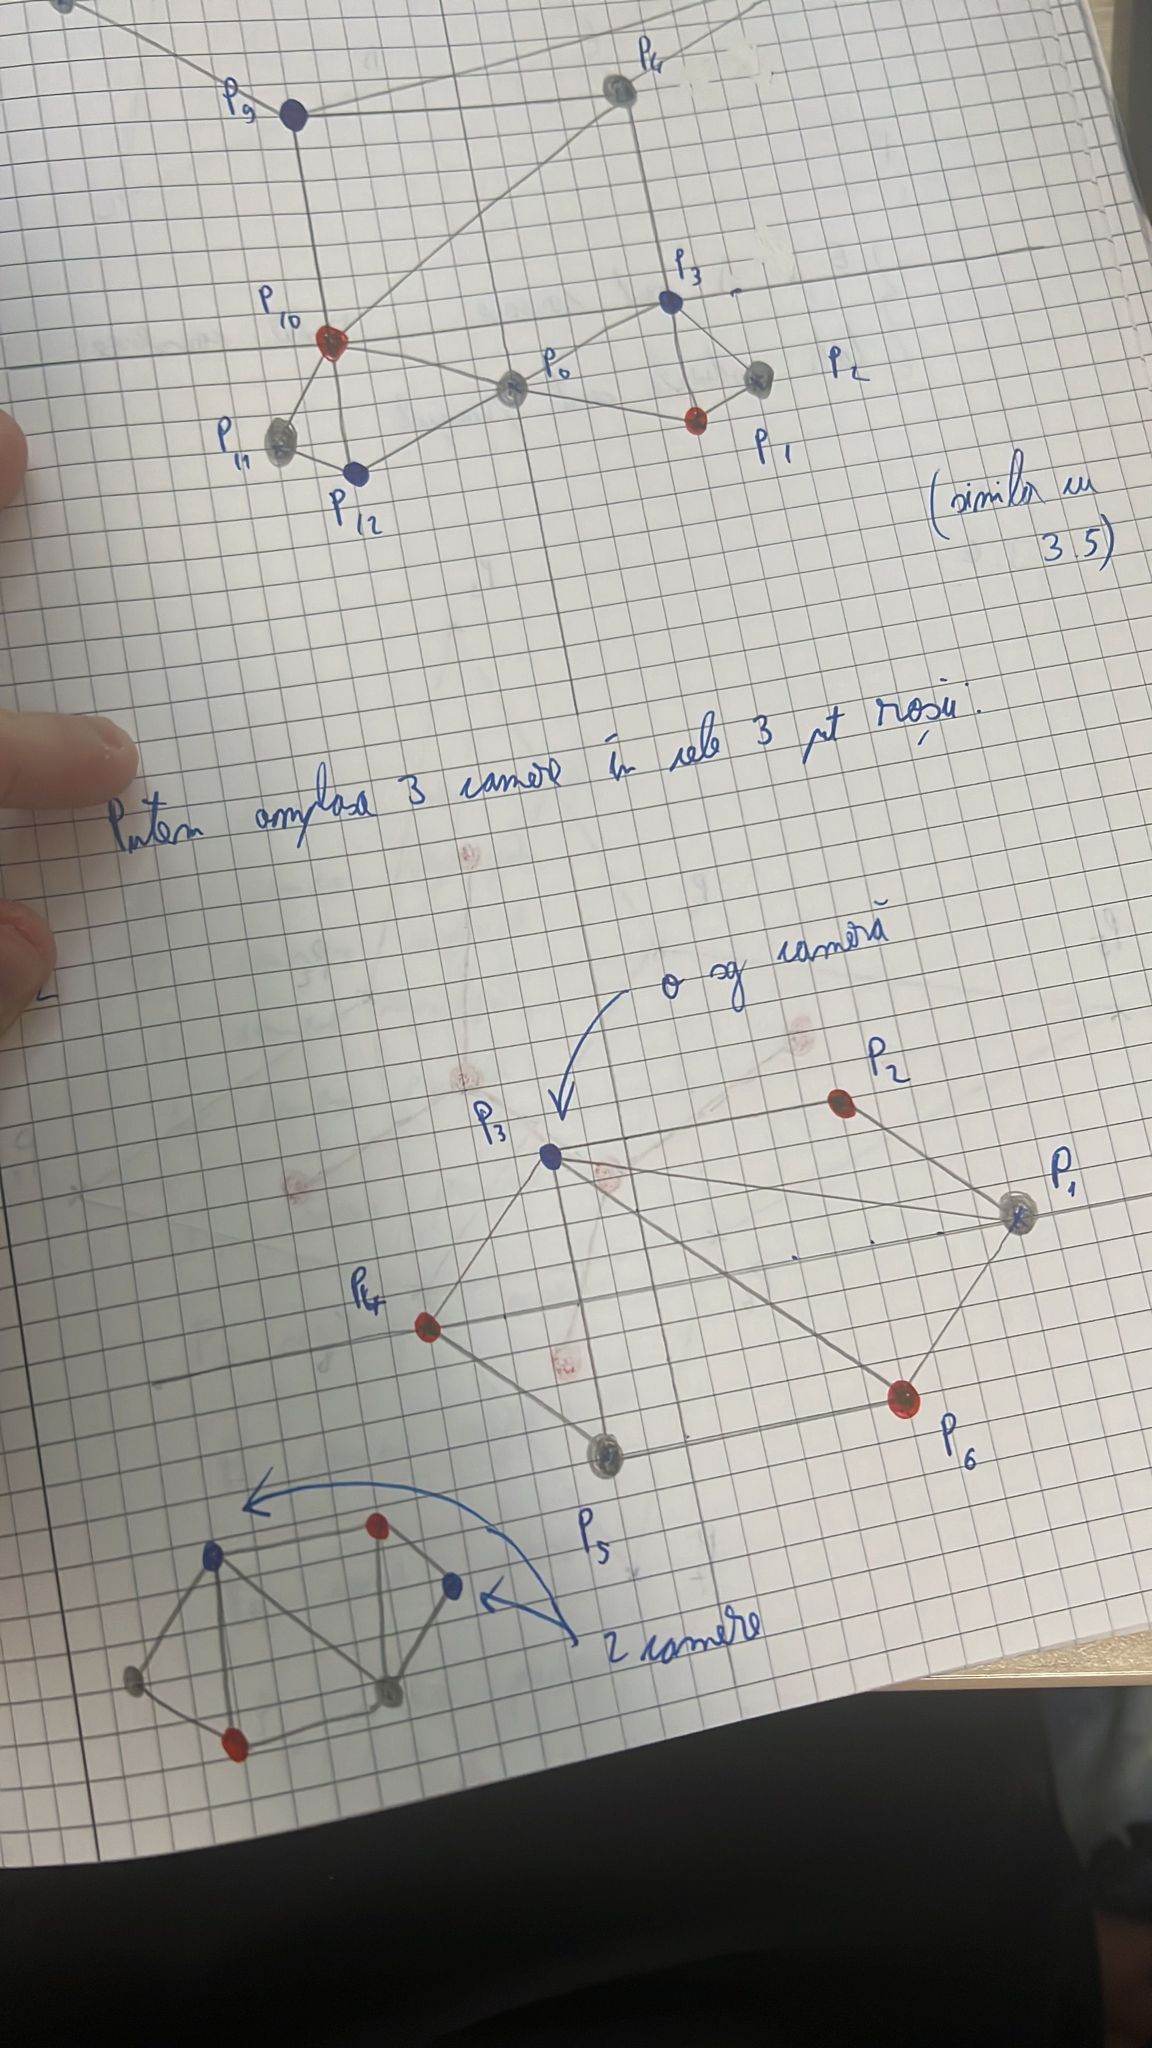 P4
P9
P3
P10
P0
P2
P11
P1
P12
(similar cu
3.5)
Putem amplasa 3 camere în cele 3 pt roșii.
o sg cameră
P2
P3
P1
P4
P6
P5
2 camere